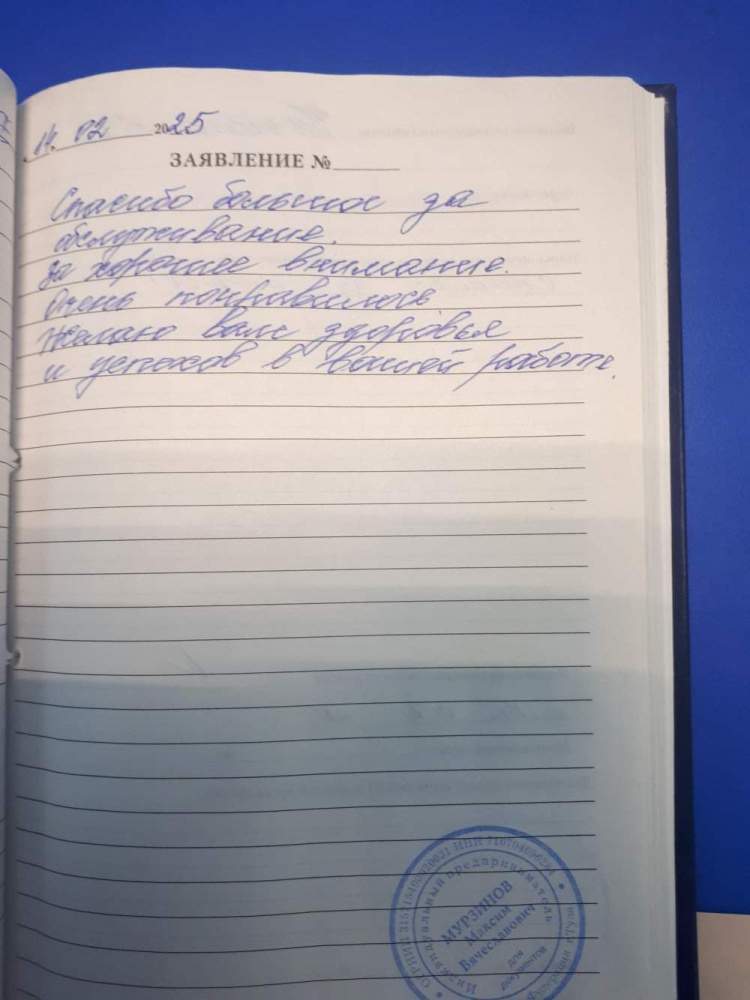 14. 02 2025
ЗАЯВЛЕНИЕ №
Спасибо большое за
обслуживание.
за хорошее внимание.
Очень понравилось
желаю вам здоровья
и успехов в вашей работе.
Индивидуальный предприниматель
МУРЗИНОВ
Максим
Вячеславович
для
документов